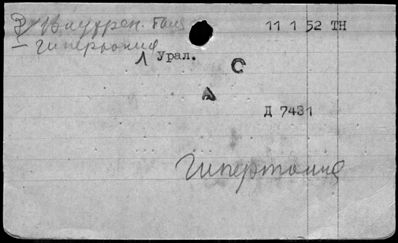 11 1 52 ТН
гипертония
Урал.
С
А
Д 7431
Гипертония